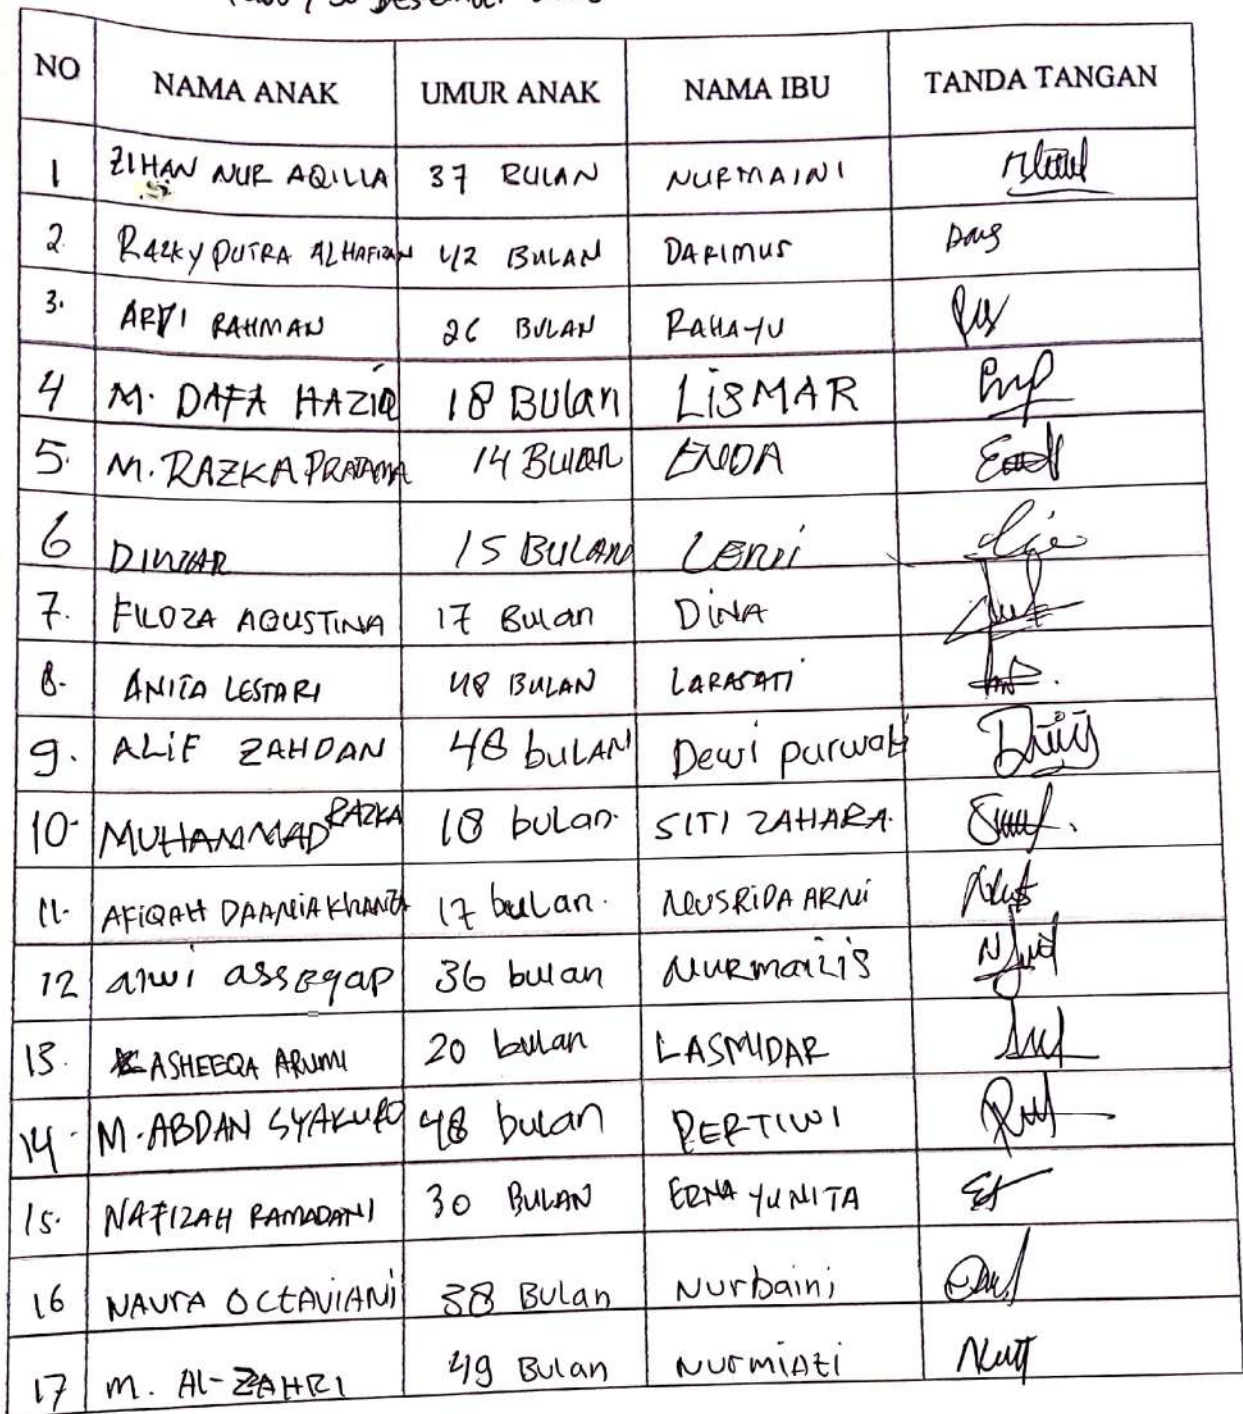 NO NAMA ANAK UMUR ANAK NAMA IBU TANDA TANGAN
1 ZIHAN NUR AQILLA 37 BULAN NURMAINI
2. RAZKY PUTRA ALHAFIZAN 42 BULAN DARIMUS
3. ARVI RAHMAN 26 BULAN RAHAYU
4 M. DAFA HAZIQ 18 BULan LiSMAR
5. M. RAZKA PRATAMA 14 BULan ENDA
6 15 BULAN LENNi
7. FILOZA AGUSTINA 17 BULan DiNA
8. ANITA LESTARI 48 BULAN LARASATi
9. ALiF ZAHDAN 48 buLAN Dewi purwati
10. MUHAMMAD RAZKA 18 bulan. SITI ZAHARA.
11. AFiQAH DAANiA KHANZA 17 bulan. NUSRiDA ARNi
12 alwi assegap 36 bulan NURmailis
13. ASHEEQA ARUMI 20 bulan LASMIDAR
14. M. ABDAN SYAKURO 48 bulan PERTIWI
15. NAFIZAH RAMADANI 30 BULAN ERNA YUNITA
16 NAURA OCTAViANi 38 Bulan Nurbaini
17 M. Al-ZAHRI 49 Bulan NurmiAti